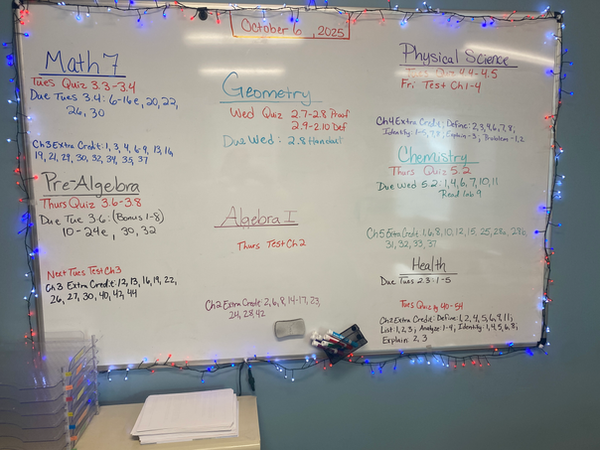 October 6, 2025
Math 7
Tues Quiz 3.3-3.4
Due Tues 3.4: 6-16e, 20, 22,
26, 30
Ch3 Extra Credit: 1, 3, 4, 6-9, 13, 16,
19, 21, 29, 30, 32, 34, 35, 37
Pre-Algebra
Thurs Quiz 3.6-3.8
Due Tue 3.6: (Bonus 1-8)
10-24e, 30, 32
Next Tues Test Ch3
Ch 3 Extra Credit: 12, 13, 16, 19, 22,
26, 27, 30, 40, 42, 44
Geometry
Wed Quiz 2.7-2.8 Proof
2.9-2.10 Def
Due Wed: 2.8 Handout
Algebra I
Thurs Test Ch2
Ch2 Extra Credit: 2, 6, 8, 14-17, 23,
24, 28, 42
Physical Science
Quiz 4.4-4.5
Fri Test Ch 1-4
Ch4 Extra Credit; Define: 2, 3, 4, 6, 7, 8;
Identify: 7, 8; Explain-3; Problem-1, 2
Chemistry
Thurs Quiz 5.2
Due Wed 5.2: 1, 4, 6, 7, 10, 11
Read Lab 9
Ch5 Extra Credit: 1, 6, 8, 10, 12, 15, 25, 28a, 28c,
31, 32, 33, 37
Health
Due Tues 2.3: 1-5
Tues Quiz 40-54
Ch2 Extra Credit: Define: 1, 2, 4, 5, 6, 9, 11;
List: 1, 2, 3; Analyze: 1-4; Identify: 1, 4, 5, 6, 8;
Explain: 2, 3